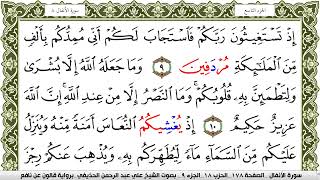 الجزء التاسع
سورة الأنفال ٨
إِذْ تَسْتَغِيثُونَ رَبَّكُمْ فَاسْتَجَابَ لَكُمْ أَنِّي مُمِدُّكُم بِأَلْفٍ
مِّنَ الْمَلَٰٓئِكَةِ مُرْدَفِينَ ٩ وَمَا جَعَلَهُ اللَّهُ إِلَّا بُشْرَىٰ
وَلِتَطْمَئِنَّ بِهِۦ قُلُوبُكُمْ وَمَا النَّصْرُ إِلَّا مِنْ عِندِ اللَّهِ إِنَّ اللَّهَ
عَزِيزٌ حَكِيمٌ ١٠ إِذْ يُغْشِيكُمُ النُّعَاسَ أَمَنَةً مِّنْهُ وَيُنَزِّلُ
عَلَيْكُم مِّنَ السَّمَآءِ مَآءً لِّيُطَهِّرَكُم بِهِۦ وَيُذْهِبَ عَنكُمْ رِجْزَ
سورة الأنفال الصفحة ١٧٨ الحزب ١٨ الجزء ٩ بصوت الشيخ علي عبد الرحمن الحذيفي برواية قالون عن نافع